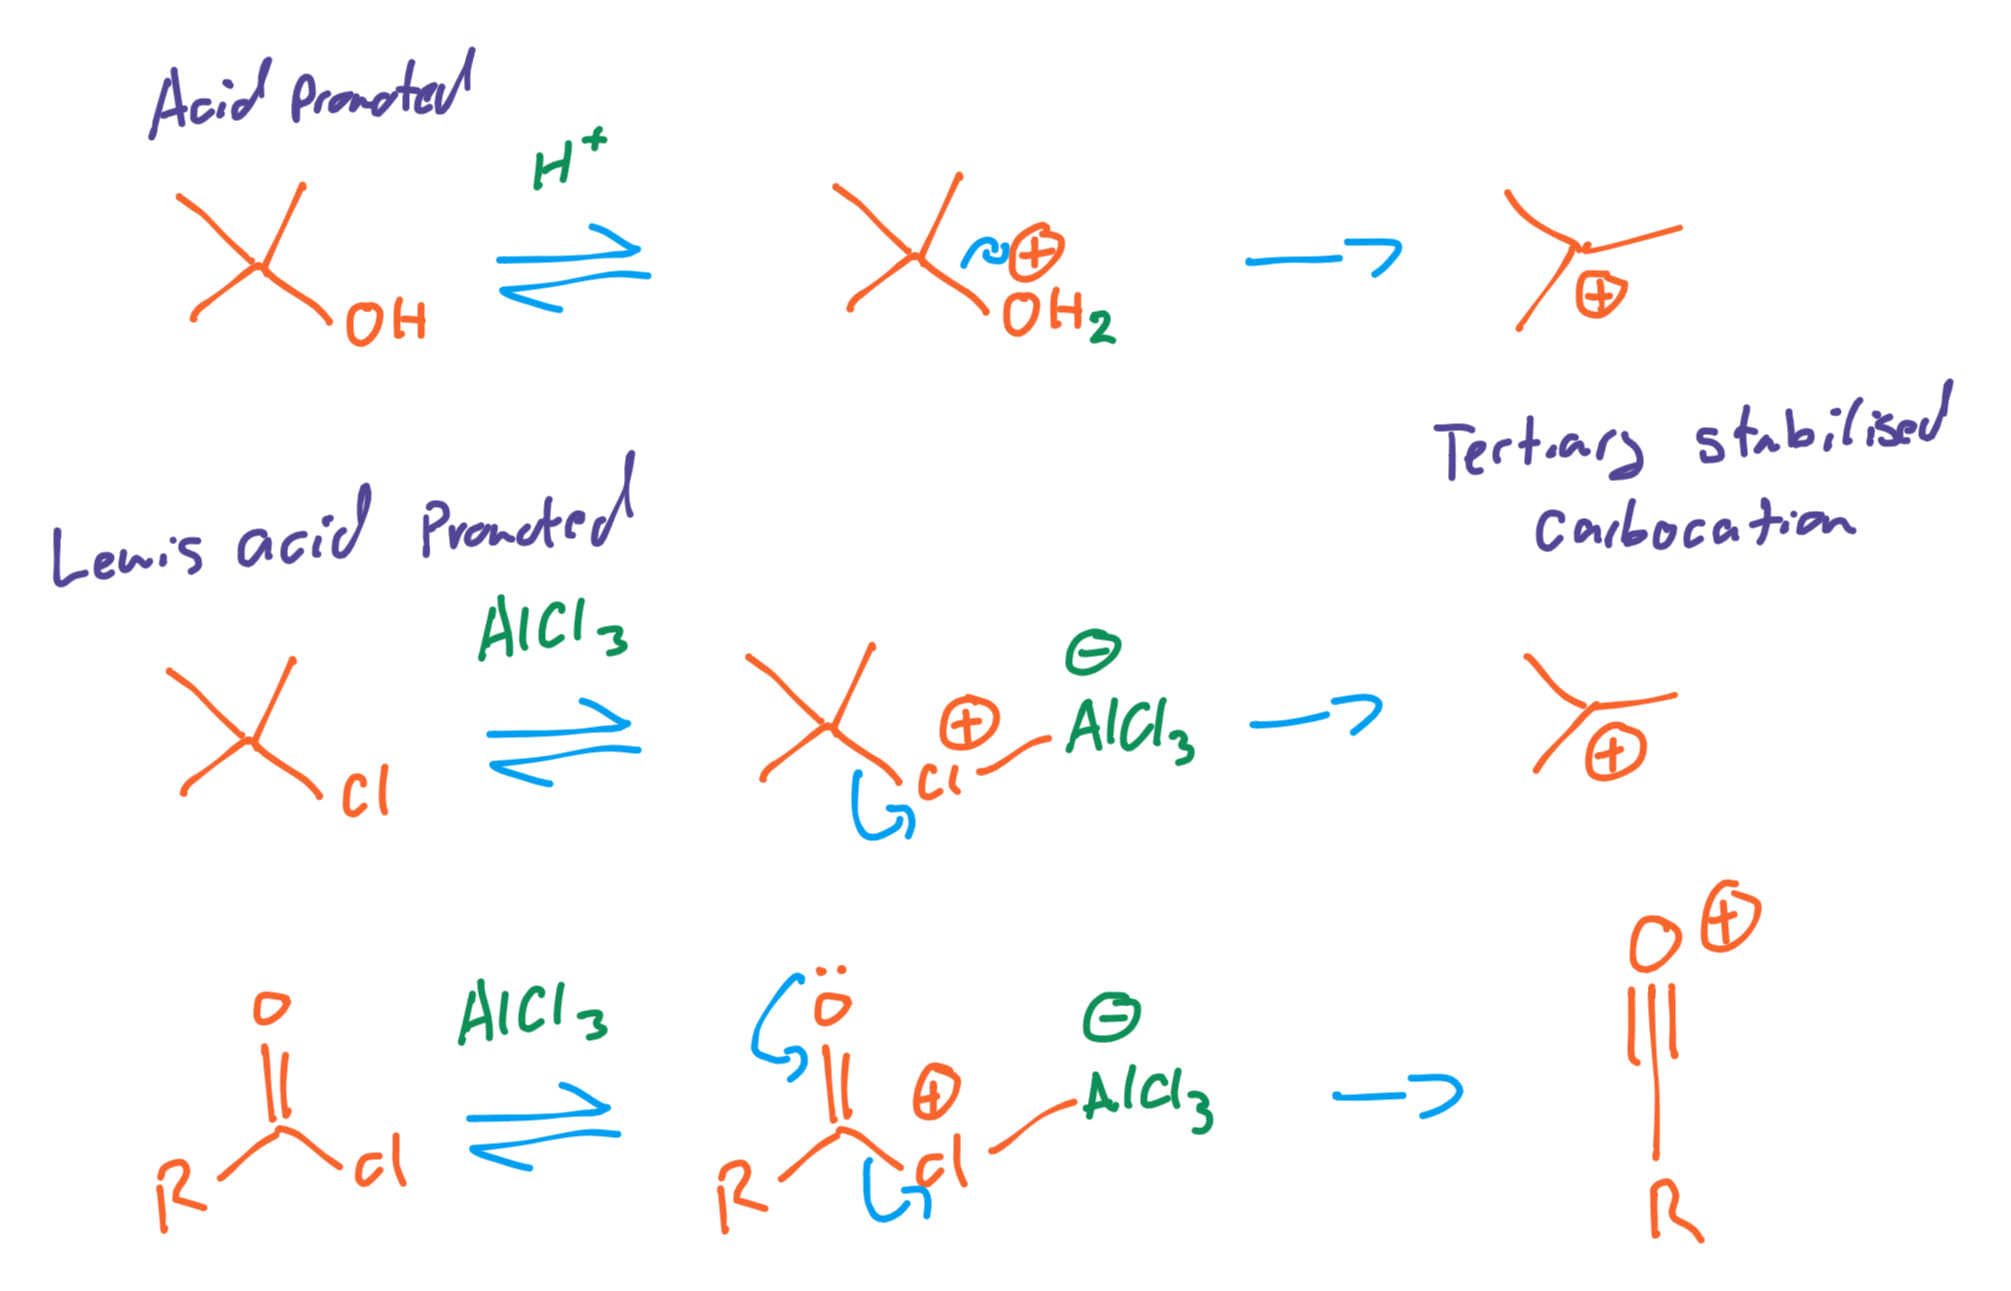 Acid Promoted
H+
OH
⊕
OH2
⊕
Tertiary stabilised
Carbocation
Lewis acid Promoted
AlCl3
Cl
⊕
Cl
⊖
AlCl3
⊕
O
R
Cl
AlCl3
O
R
⊕
Cl
⊖
AlCl3
O ⊕
R